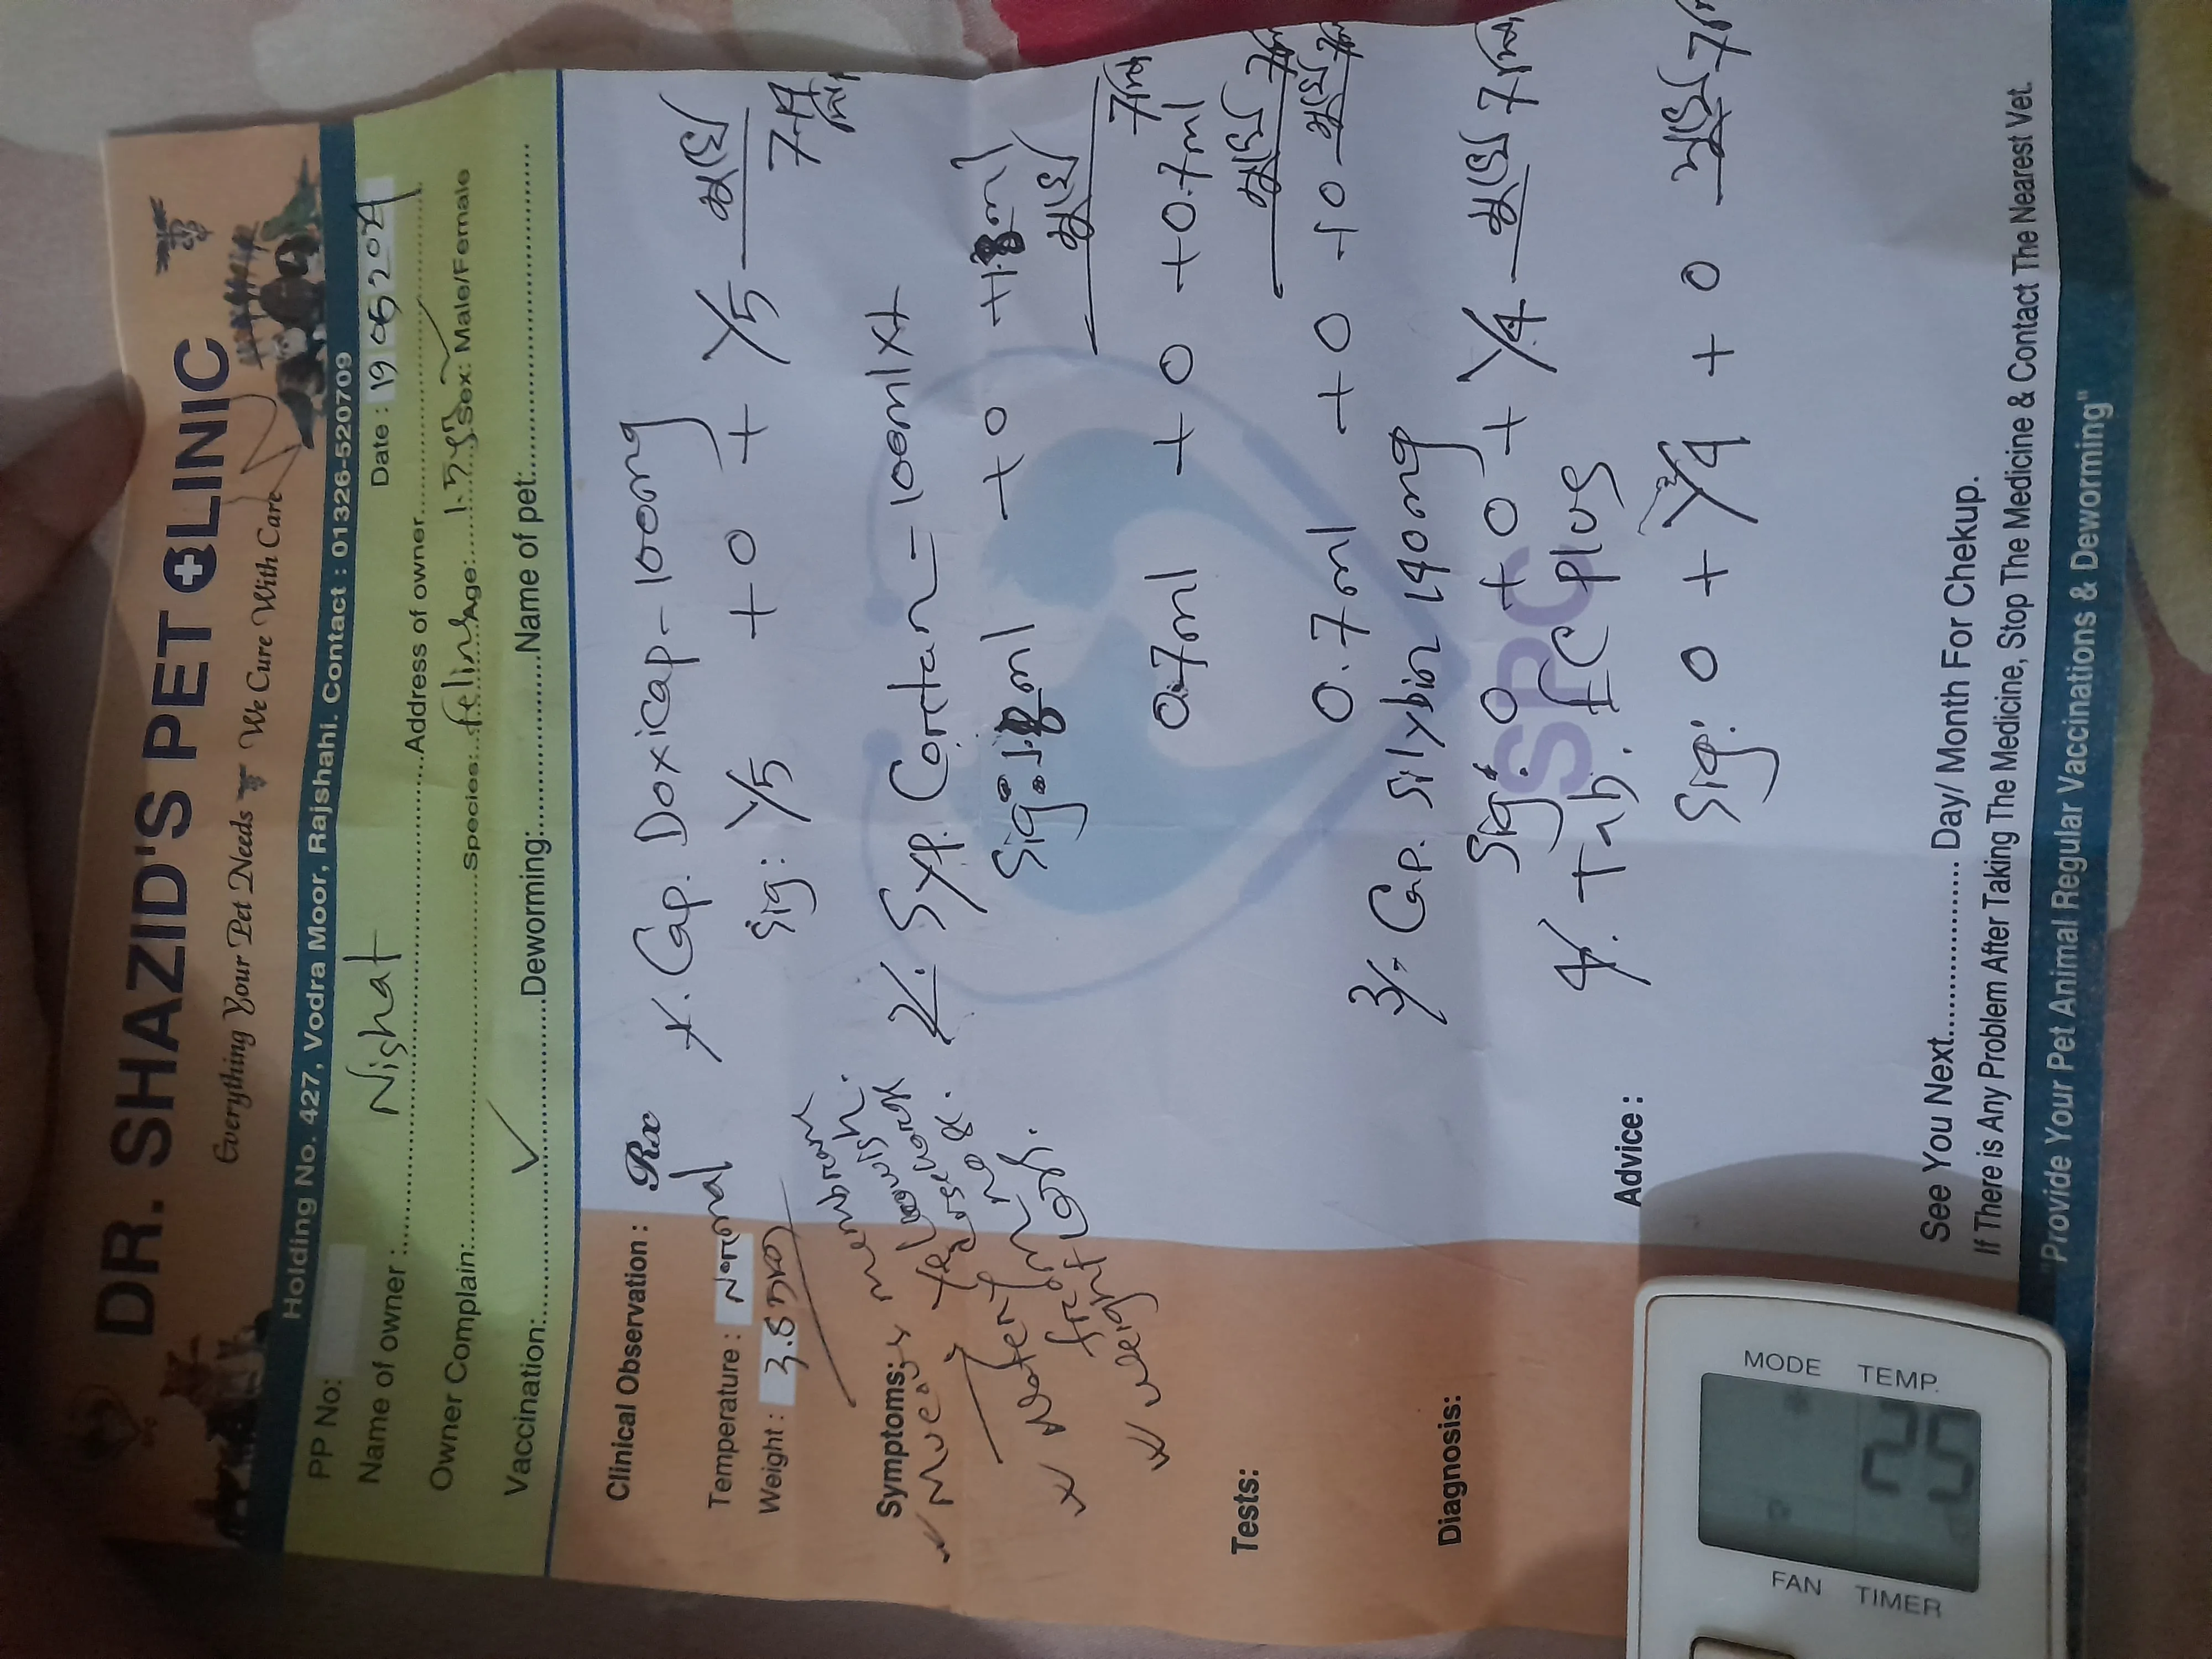 DR. SHAZID'S PET CLINIC
Everything Your Pet Needs We Cure With Care
Holding No. 427, Vodra Moor, Rajshahi. Contact : 01326-520709
PP No:
Date : 19 05 2024
Name of owner : Nishat Address of owner
Owner Complain: Species: feline Age: 1.5 Sex: Male/Female
Vaccination: Deworming: Name of pet:
Clinical Observation :
Temperature : Normal
Weight : 3.5
Symptoms:
Mucous membrane
yellowish.
Water
from
weight loss.
Tests:
Diagnosis:
Rx
1. Cap. Doxicap - 100mg
Sig: 1/5 + 0 + 1/5
7
2. Syp. Cortan - 100ml x 1
Sig: ml + 0 + ml
7
0.7ml + 0 + 0.7ml
7
0.7ml + 0 + 0
7
3. Cap. Silybin 140mg
Sig: 0 + 0 + 1/4 7
4. Tab. FC plus
Sig: 0 + 1/4 + 0 7
Advice :
See You Next Day/ Month For Chekup.
If There is Any Problem After Taking The Medicine, Stop The Medicine & Contact The Nearest Vet.
"Provide Your Pet Animal Regular Vaccinations & Deworming"
SPC
MODE TEMP.
25
FAN TIMER